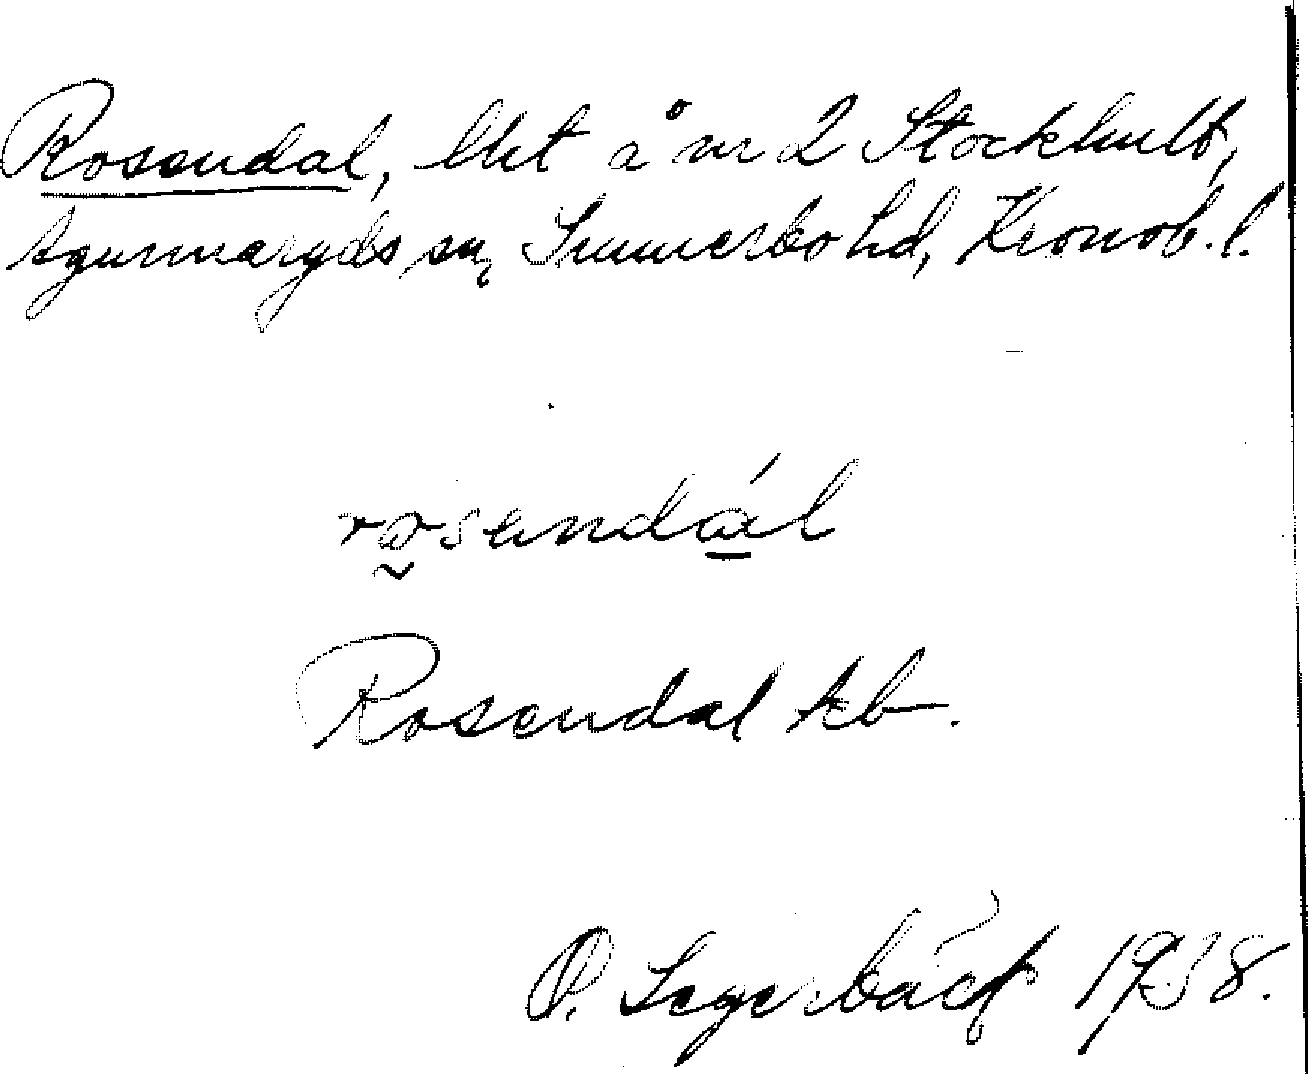 Rosendal, lht å nr 2 Stockhult,
Agunnaryds sn, Sunnerbo hd, Kronob. l.
rosendál
Rosendal kb.
P. Segerbäck 1938.